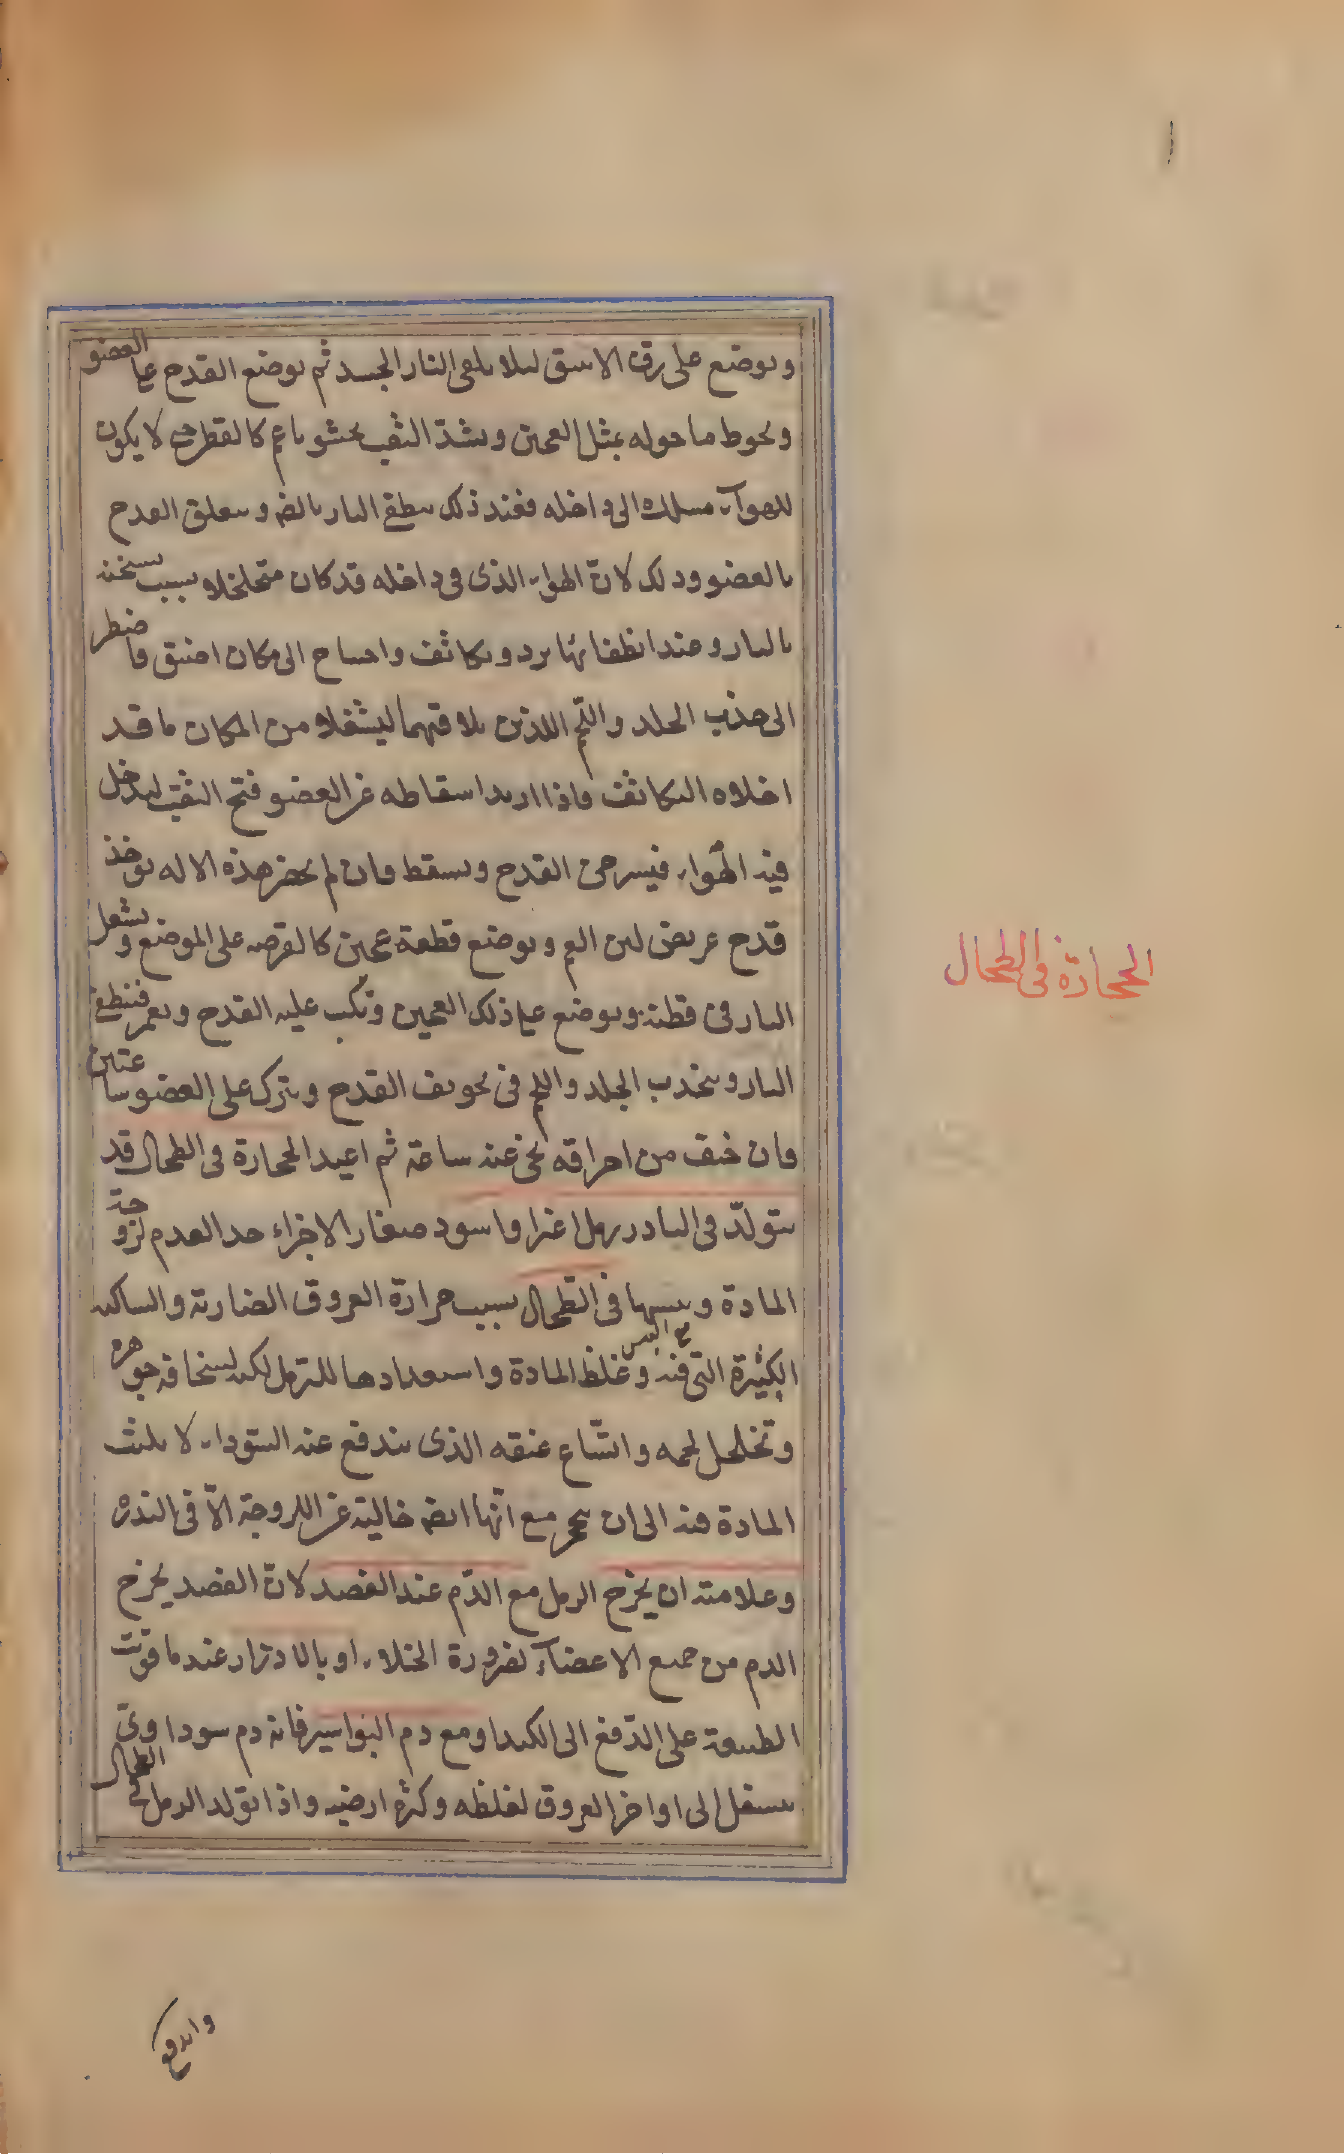 ويوضع على رق الاسق ليلا يلقى النار الجسد ثم يوضع القدح على العضو
ويحوط ما حوله بمثل العجين ويشد الثقب بحشو ناعم كالقطن حتى لا يكون
للهوآء مسلك الى داخله فعند ذلك ينطفئ النار بالضرورة ويتعلق القدح
بالعضو وذلك لان الهواء الذى فى داخله قد كان متخلخلا بسبب تسخنه
بالنار وعند انطفائها برد وتكاثف واحتاج الى مكان اضيق فاضطر
الى جذب الجلد واللحم اللذين يلاقيهما ليشغلا من المكان ما قد
اخلاه التكاثف واذا اريد اسقاطه عن العضو فتح الثقب ليدخل
فيه الهواء فيسترخى القدح ويسقط وان لم يحضر هذه الاله يوخذ
قدح عريض لين الفم ويوضع قطعة عجين كالقرصه على الموضع ويشعل
النار فى قطنة ويوضع على ذلك العجين وتكب عليه القدح ويغمز فينطفئ
النار وينجذب الجلد واللحم فى تجويف القدح ويترك على العضو ساعتين
وان خيف من احراقه نحى عنه ساعة ثم اعيد الحجارة فى الطحال قد
يتولد فى النادر رمل اغبر او اسود صغار الاجزاء جدا لعدم لزوجة
المادة ويبسها فى الطحال بسبب حرارة العروق الضاربة والساكنه
الكثيرة التى فيه مع اليبس وغلظ المادة واستعدادها للترمل لكنه لسخافة جوهره
وتخلخل لحمه واتساع عنقه الذى يندفع عنه السوداء لا يلبث
المادة فيه الى ان يتحجر مع انها ايضا خالية عن اللزوجة الا فى الندرة
وعلامته ان يخرج الرمل مع الدم عند الفصد لان الفصد يخرج
الدم من جميع الاعضآء لضرورة الخلاء او بالادرار عند ما قويت
الطبيعة على الدفع الى الكبد او مع دم البواسير فانه دم سوداوى
يتسفل الى اواخر العروق لغلظه وكثرة ارضيته واذا تولد الرمل فى الطحال
الحجارة فى الطحال
واندفع